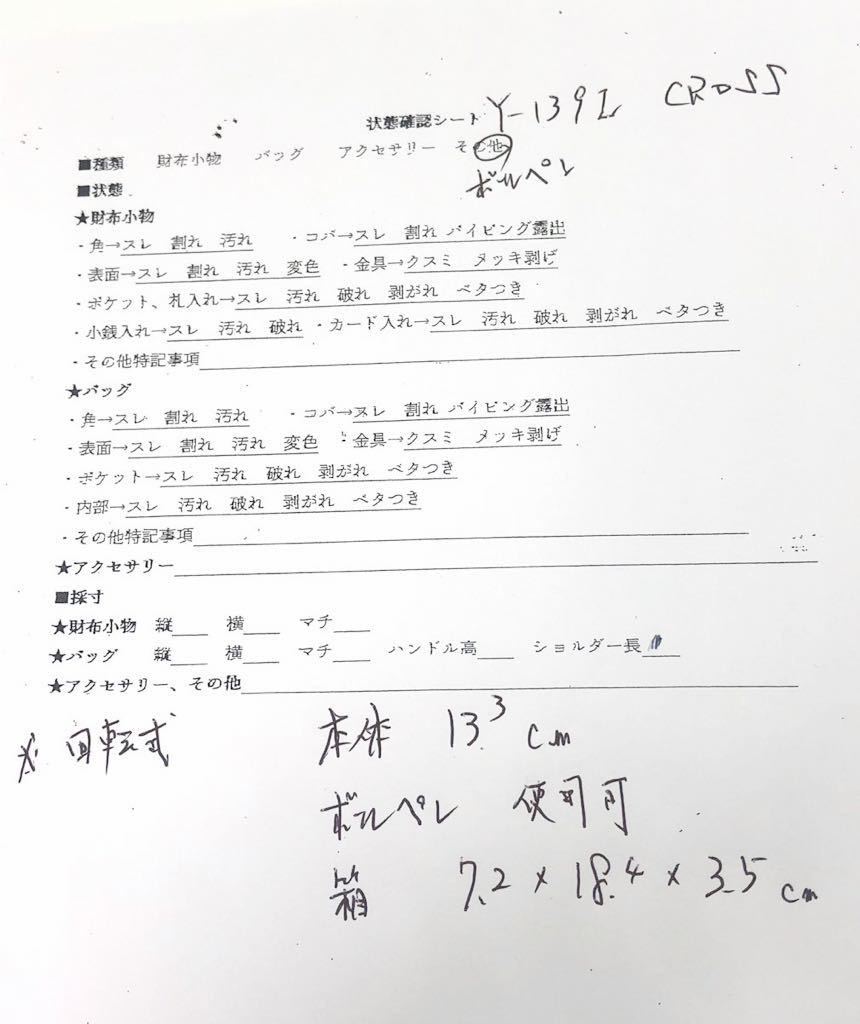 状態確認シート Y-139I CROSS
■種類 財布小物 バッグ アクセサリー その他
ボールペン
■状態
★財布小物
・角→スレ 割れ 汚れ ・コバ→スレ 割れ パイピング露出
・表面→スレ 割れ 汚れ 変色 ・金具→クスミ メッキ剥げ
・ポケット、札入れ→スレ 汚れ 破れ 剥がれ ベタつき
・小銭入れ→スレ 汚れ 破れ ・カード入れ→スレ 汚れ 破れ 剥がれ ベタつき
・その他特記事項
★バッグ
・角→スレ 割れ 汚れ ・コバ→スレ 割れ パイピング露出
・表面→スレ 割れ 汚れ 変色 ・金具→クスミ メッキ剥げ
・ポケット→スレ 汚れ 破れ 剥がれ ベタつき
・内部→スレ 汚れ 破れ 剥がれ ベタつき
・その他特記事項
★アクセサリー
■採寸
★財布小物 縦 横 マチ
★バッグ 縦 横 マチ ハンドル高 ショルダー長
★アクセサリー、その他
※ 回転式 本体 13.3 cm
ボールペン 使用可
箱 7.2 × 18.4 × 3.5 cm